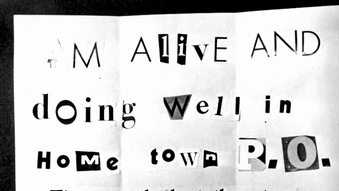 AM AlivE AND
doing Well in
HoMe town P.O.